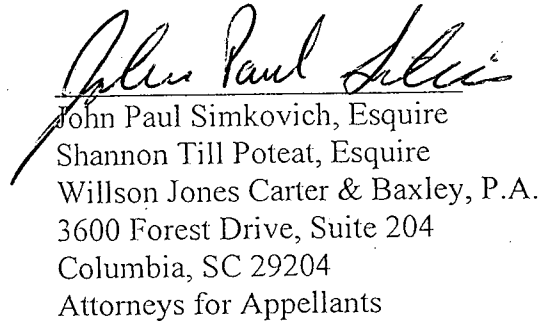 John Paul Simkovich, Esquire
Shannon Till Poteat, Esquire
Willson Jones Carter & Baxley, P.A.
3600 Forest Drive, Suite 204
Columbia, SC 29204
Attorneys for Appellants